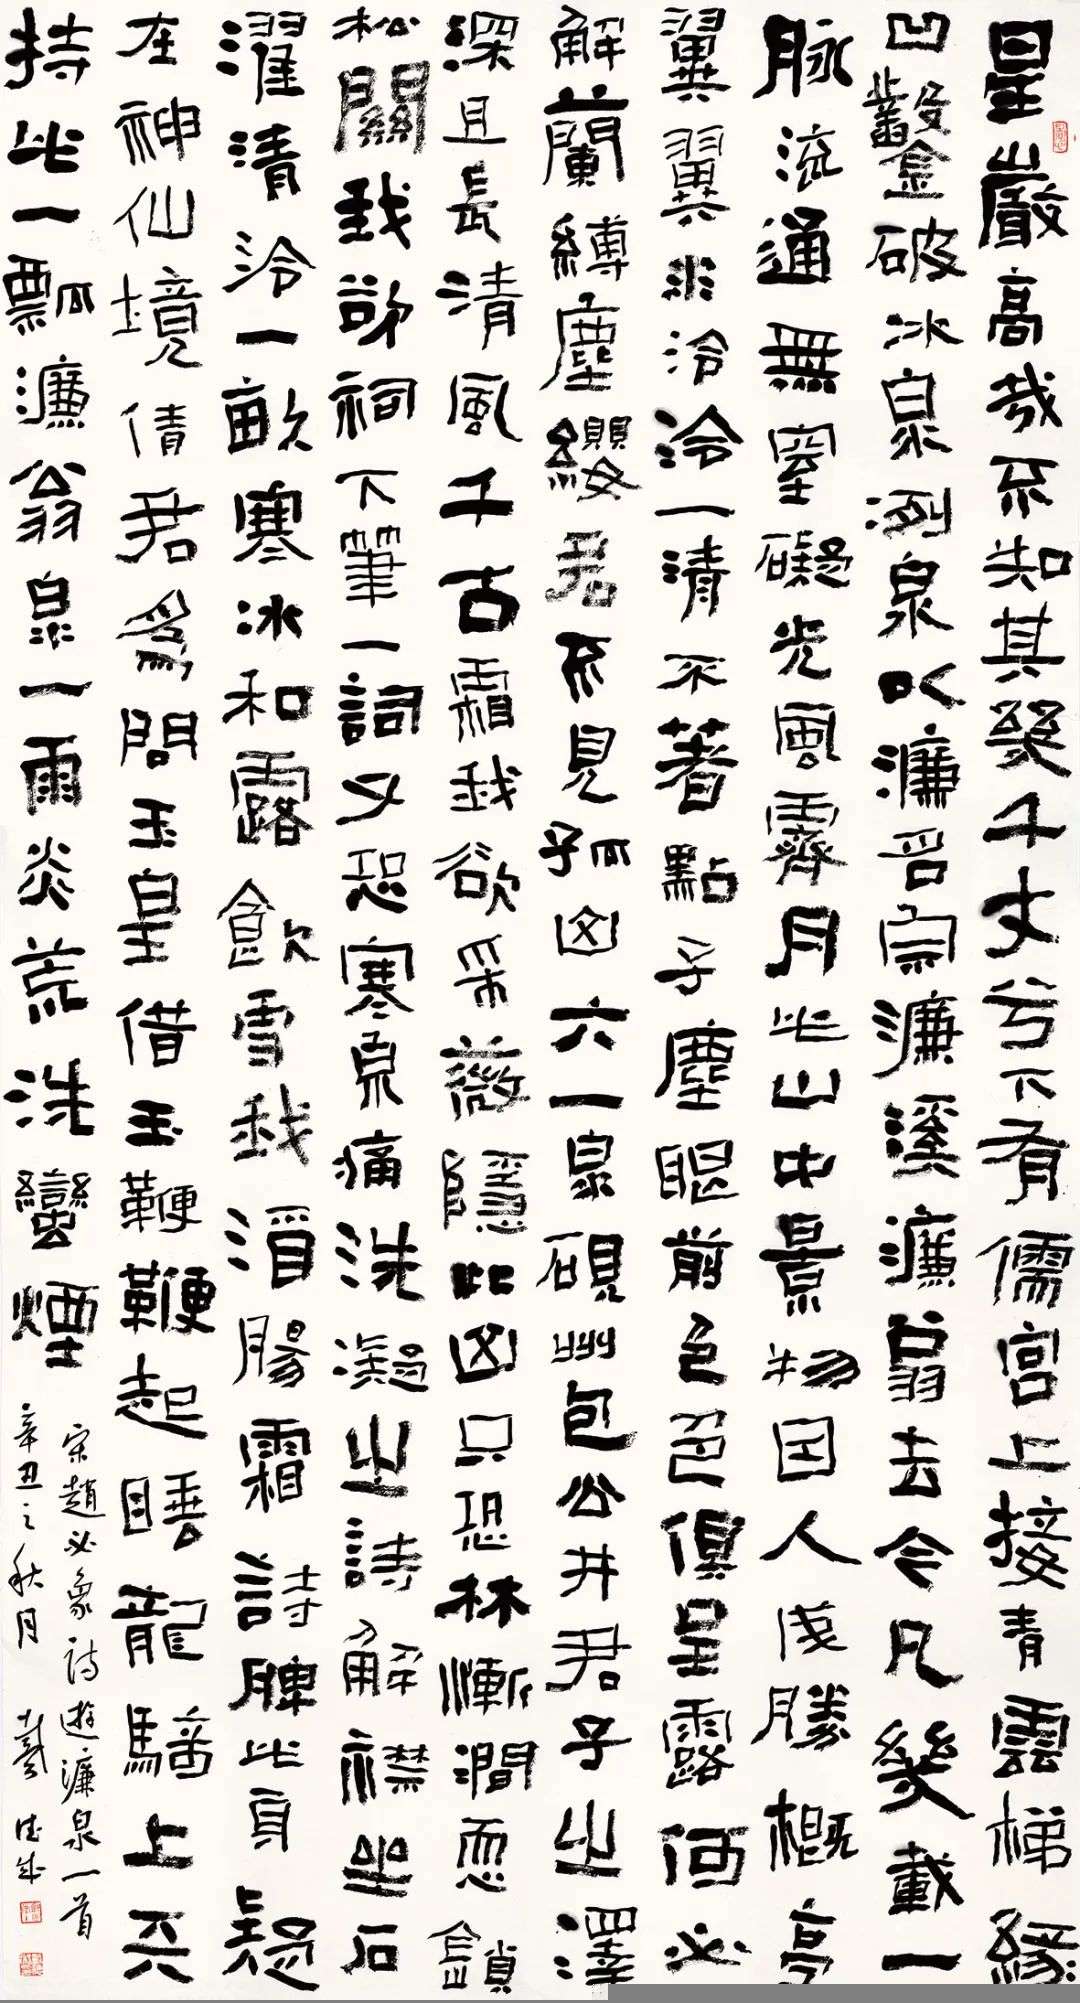 星巖高哉不知其幾千丈兮下有儒宮上接青雲梯緣
凹鑿破冰泉冽泉以濂名宗濂溪濂翁去今凡幾載一
脉流通無窒礙光風霽月此山中景物因人成勝概亭
翼翼水泠泠一清不著點子塵眼前色色俱呈露何必
解蘭縛塵纓君不見孤山六一泉硯洲包公井君子之澤
深且長清風千古霜我欲采薇隱此山只恐林慚澗恧鎖
松關我欲祠下筆一詞又恐寒泉痛洗凝之詩解襟坐石
濯清泠一畝寒冰和露飲雪我腸霜詩脾此身疑
在神仙境倩君為問玉皇借玉鞭鞭起睡龍騎上天
持此一瓢濂翁泉一雨炎荒洗蠻煙
宋趙必象詩遊濂泉一首
辛丑之秋月